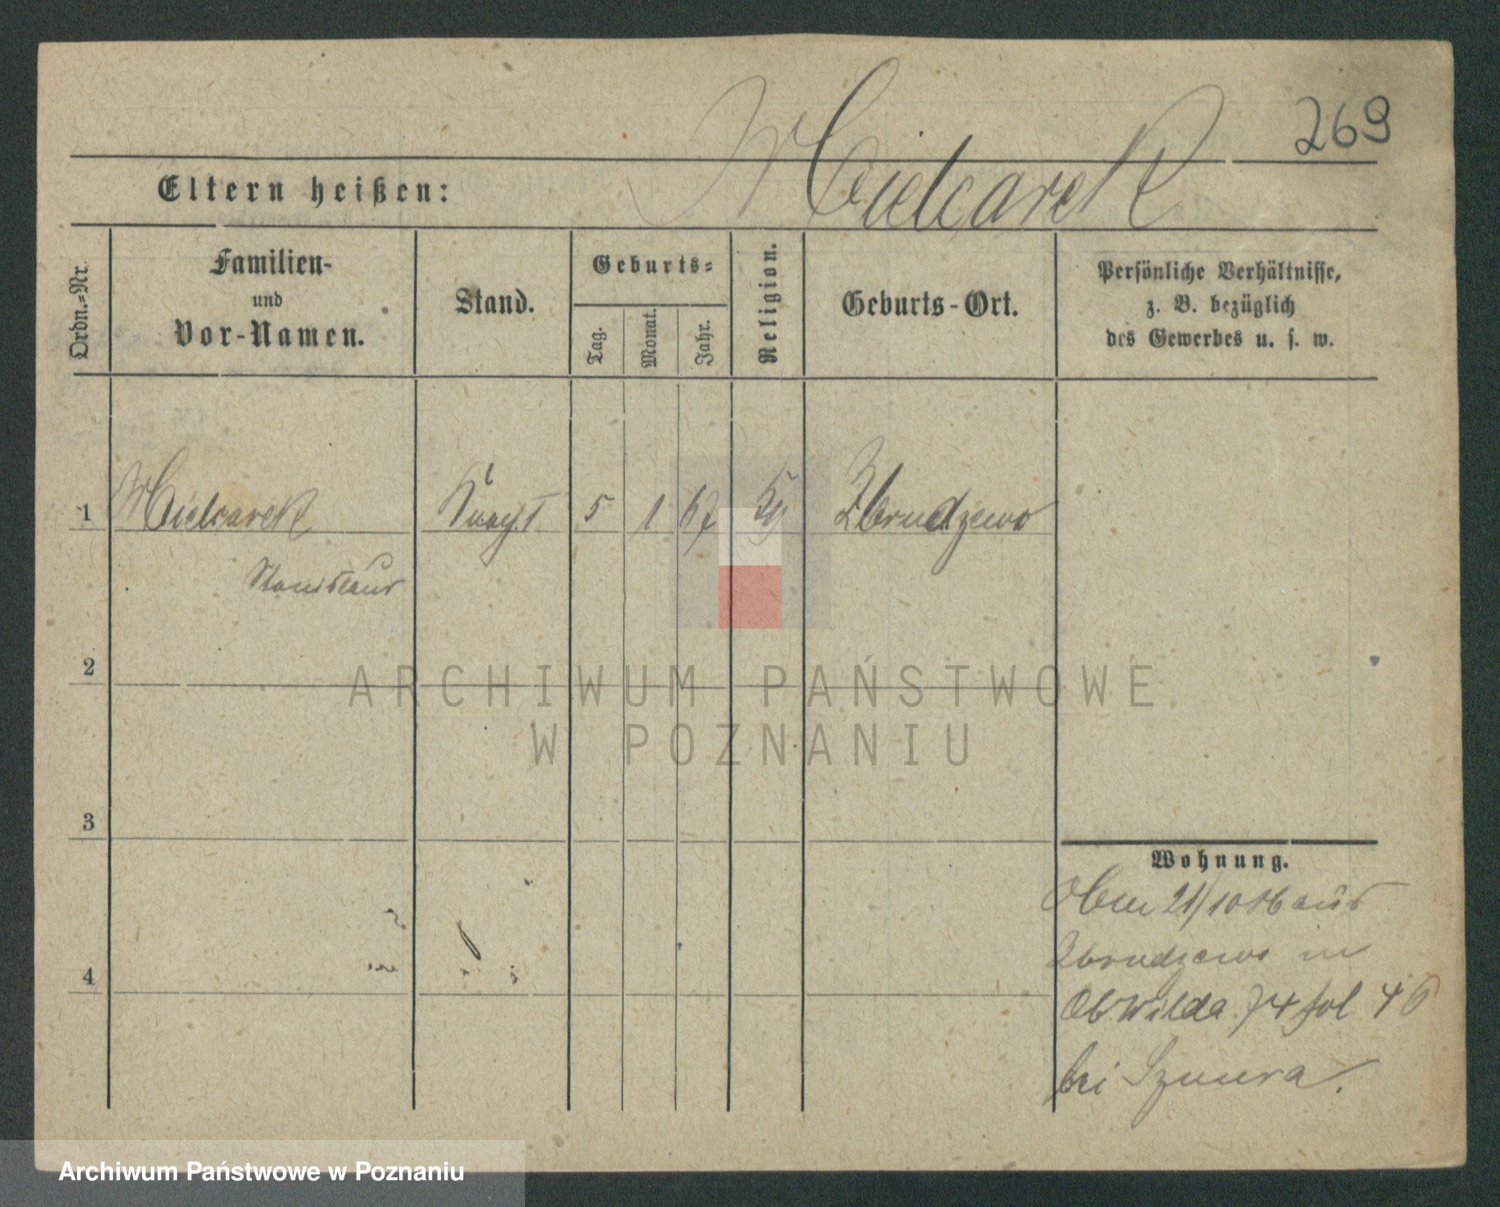 269
Mielcarek
Eltern heißen:
Ordn.-Nr.
Familien-
und
Vor-Namen.
Stand.
Geburts-
Tag.
Monat.
Jahr.
Religion.
Geburts-Ort.
Persönliche Verhältnisse,
z. B. bezüglich
des Gewerbes u. s. w.
1 Mielcarek 5 1 67 Zbrudzewo
Stanislaus
2
3
4
Wohnung.
21/10 86 aus
Zbrudzewo in
ObWilda 74 fol 46
bei Szmura.
ARCHIWUM PAŃSTWOWE
W POZNANIU
Archiwum Państwowe w Poznaniu